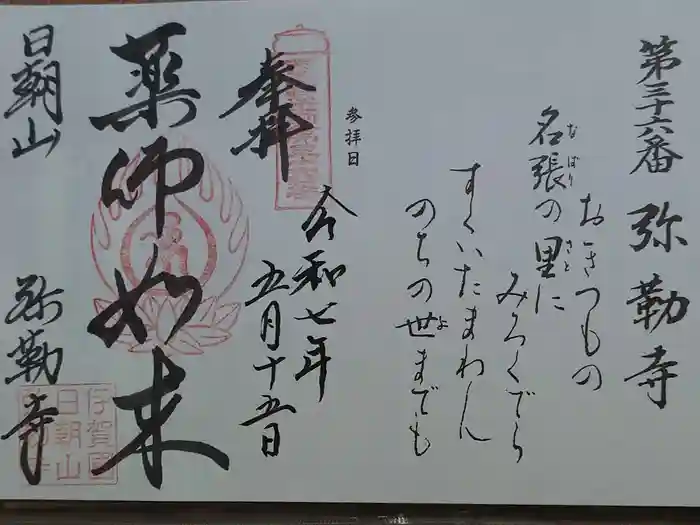 第三十六番 弥勒寺
おきつもの
名張の里に
なばり
さと
みろくでら
すくいたまわん
のちの世までも
よ
参拝日
奉拝
令和七年
五月十五日
薬師如来
日朝山 弥勒寺
伊賀國
日朝山